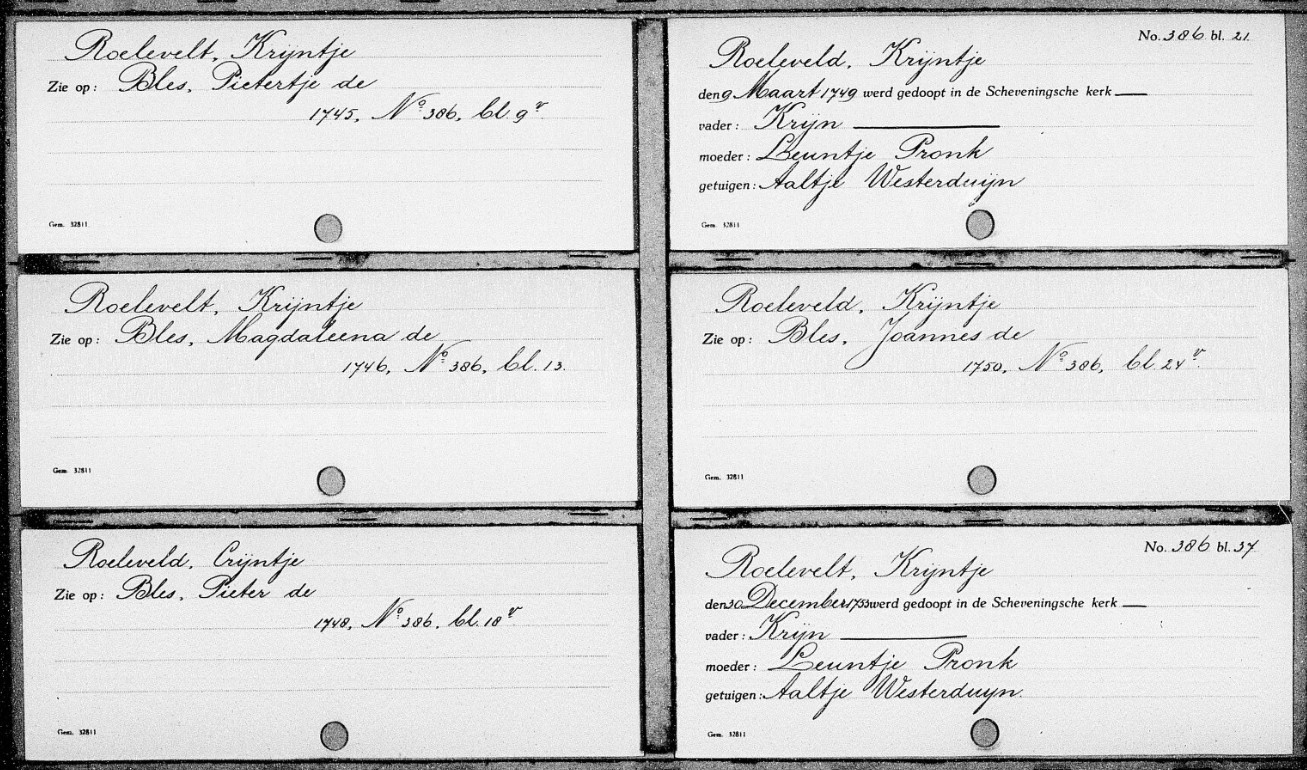 Roelevelt, Krijntje
Zie op: Bles, Pietertje de
1745, No 386, bl. 9v
Gem. 32811
Roelevelt, Krijntje
Zie op: Bles, Magdaleena de
1746, No 386, bl. 13.
Gem. 32811
Roeleveld, Crijntje
Zie op: Bles, Pieter de
1748, No 386, bl. 18v
Gem. 32811
No. 386 bl. 21.
Roeleveld, Krijntje
den 9 Maart 1749 werd gedoopt in de Scheveningsche kerk
vader: Krijn
moeder: Leuntje Pronk
getuigen: Aaltje Westerduijn
Gem. 32811
Roeleveld, Krijntje
Zie op: Bles, Joannes de
1750, No 386, bl. 24v
Gem. 32811
No. 386 bl. 37
Roelevelt, Krijntje
den 30 December 1753 werd gedoopt in de Scheveningsche kerk
vader: Krijn
moeder: Leuntje Pronk
getuigen: Aaltje Westerduyn.
Gem. 32811